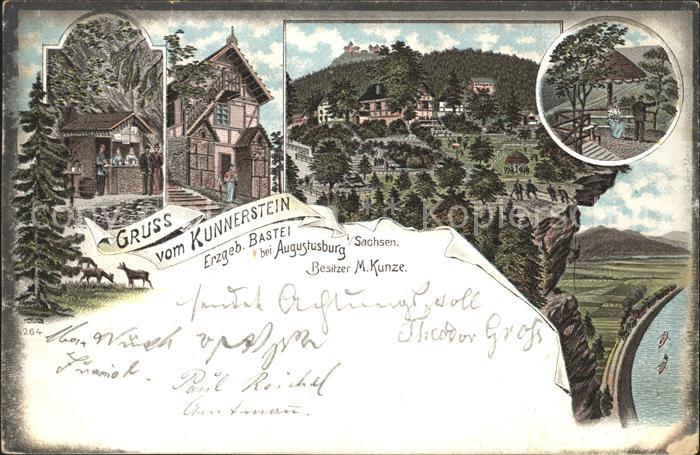 GRUSS
vom KUNNERSTEIN
Erzgeb. BASTEI
bei Augustusburg / Sachsen.
Besitzer M. Kunze.
264
sendet Achtungsvoll
Theodor
Paul Reichel
Amtmann.